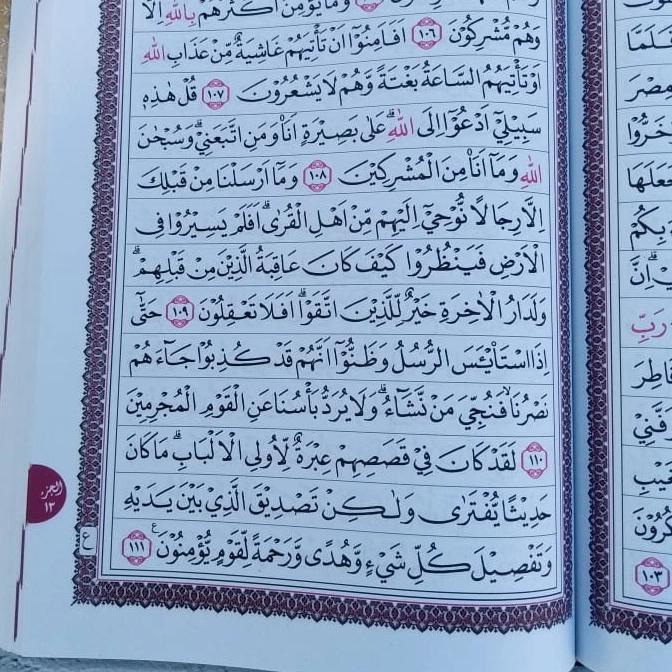 وَمَا يُؤْمِنُ اَكْثَرُهُمْ بِاللّٰهِ اِلَّا
وَهُمْ مُّشْرِكُوْنَ ١٠٦ اَفَاَمِنُوْٓا اَنْ تَأْتِيَهُمْ غَاشِيَةٌ مِّنْ عَذَابِ اللّٰهِ
اَوْ تَأْتِيَهُمُ السَّاعَةُ بَغْتَةً وَّهُمْ لَا يَشْعُرُوْنَ ١٠٧ قُلْ هٰذِهٖ
سَبِيْلِيْٓ اَدْعُوْٓا اِلَى اللّٰهِ ۗعَلٰى بَصِيْرَةٍ اَنَا۠ وَمَنِ اتَّبَعَنِيْ ۗوَسُبْحٰنَ
اللّٰهِ وَمَآ اَنَا۠ مِنَ الْمُشْرِكِيْنَ ١٠٨ وَمَآ اَرْسَلْنَا مِنْ قَبْلِكَ
اِلَّا رِجَالًا نُّوْحِيْٓ اِلَيْهِمْ مِّنْ اَهْلِ الْقُرٰىۗ اَفَلَمْ يَسِيْرُوْا فِى
الْاَرْضِ فَيَنْظُرُوْا كَيْفَ كَانَ عَاقِبَةُ الَّذِيْنَ مِنْ قَبْلِهِمْۗ
وَلَدَارُ الْاٰخِرَةِ خَيْرٌ لِّلَّذِيْنَ اتَّقَوْاۗ اَفَلَا تَعْقِلُوْنَ ١٠٩ حَتّٰٓى
اِذَا اسْتَا۟يْـَٔسَ الرُّسُلُ وَظَنُّوْٓا اَنَّهُمْ قَدْ كُذِبُوْا جَاۤءَهُمْ
نَصْرُنَاۙ فَنُجِّيَ مَنْ نَّشَاۤءُ ۗوَلَا يُرَدُّ بَأْسُنَا عَنِ الْقَوْمِ الْمُجْرِمِيْنَ
١١٠ لَقَدْ كَانَ فِيْ قَصَصِهِمْ عِبْرَةٌ لِّاُولِى الْاَلْبَابِۗ مَا كَانَ
حَدِيْثًا يُّفْتَرٰى وَلٰكِنْ تَصْدِيْقَ الَّذِيْ بَيْنَ يَدَيْهِ
وَتَفْصِيْلَ كُلِّ شَيْءٍ وَّهُدًى وَّرَحْمَةً لِّقَوْمٍ يُّؤْمِنُوْنَ ࣖ ١١١
ع
الجزء
١٣
فَلَمَّا
مِصْرَ
خَرُّوْا
جَعَلَهَا
بِكُمْ
اِنَّ
رَبِّ
فَاطِرَ
فَّنِيْ
غَيْبِ
كُرُوْنَ
١٠٣